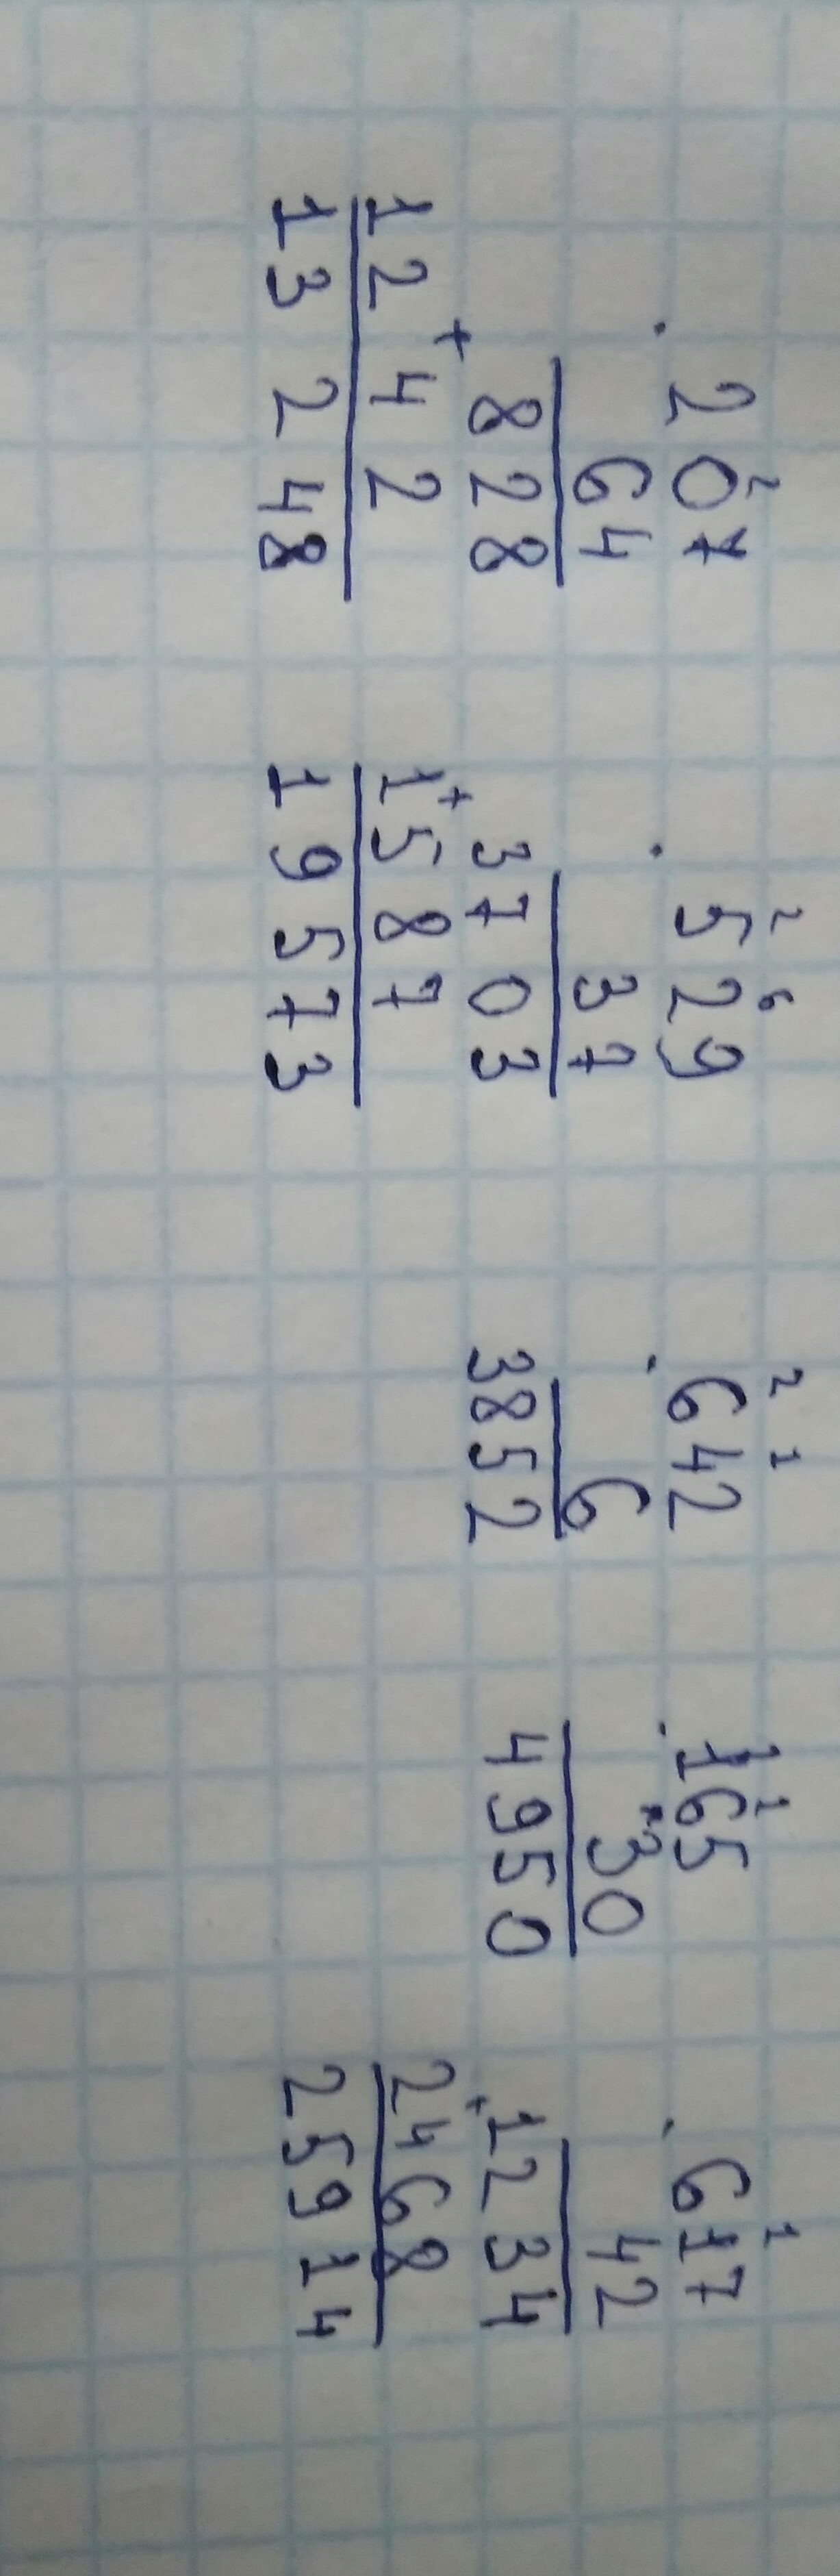 2
· 207
64
828
+
1242
13248
2 6
· 529
37
3703
+
1587
19573
2 1
· 642
6
3852
1 1
· 165
30
4950
1
· 617
42
1234
+
2468
25914